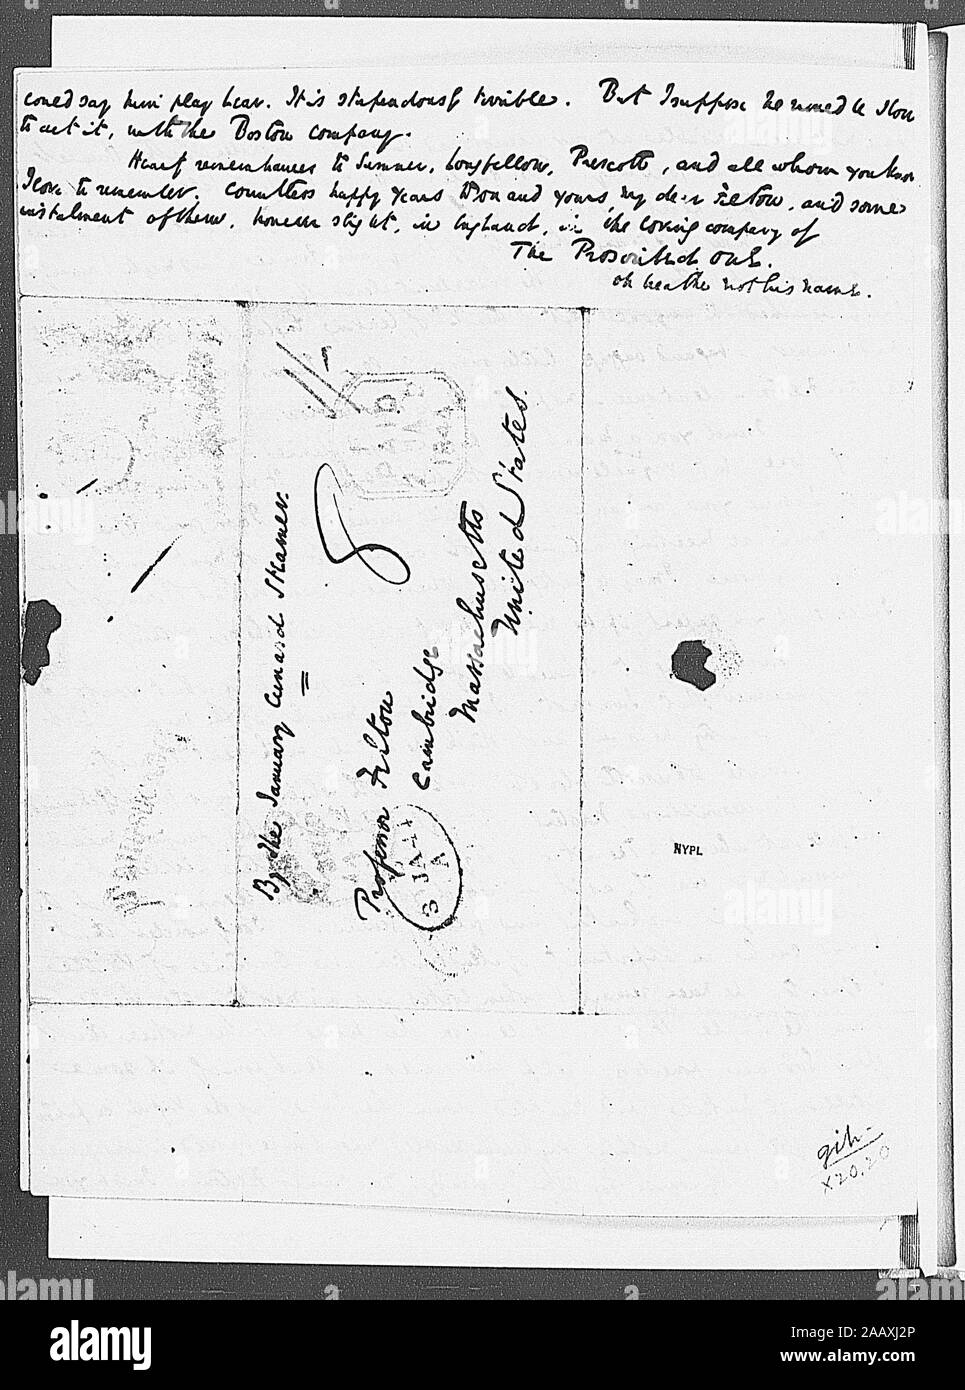 could say him play Lear. It is stupendously terrible. But I suppose he would be slow
to act it, with the Boston company.
Heart remembrances to Sumner, Longfellow, Prescott, and all whom you know
I love to remember. Countless happy years to you and yours, my dear Felton, and some
instalment of them, however slight, in England, in the loving company of
The Proscribed One.
oh breathe not his name.
By the January Cunard Steamer.
Professor Felton
Cambridge
Massachusetts
United States.
8
PAID
1844
3 JA 44
A
NYPL
alamy
Image ID: 2AAXJ2P
www.alamy.com